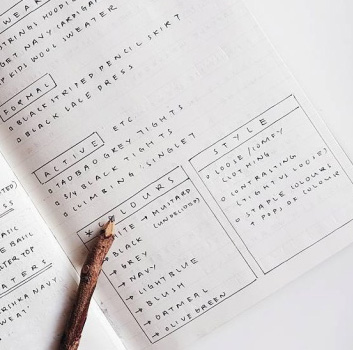 WEAR
STRINGS HOODI
GET NAVY CARDIGA
KIDS WOOL SWEATER
FORMAL
BLACK STRIPED PENCIL SKIRT
BLACK LACE DRESS
ACTIVE ETC.
TAOBAO GREY TIGHTS
3/4 BLACK TIGHTS
CLIMBING SINGLET
COLOURS
WHITE → MUSTARD
(UNDECIDED)
→ BLACK
→ GREY
→ NAVY
→ LIGHT BLUE
→ BLUSH
→ OATMEAL
→ OLIVE GREEN
STYLE
LOOSE/COMFY
CLOTHING
CONTRASTING
(TIGHT VS LOOSE)
STAPLE COLOURS
+ POPS OF COLOUR
ASIC
E BASIC
STER TOP
ATERS
RIHKA NAVY
WEAT